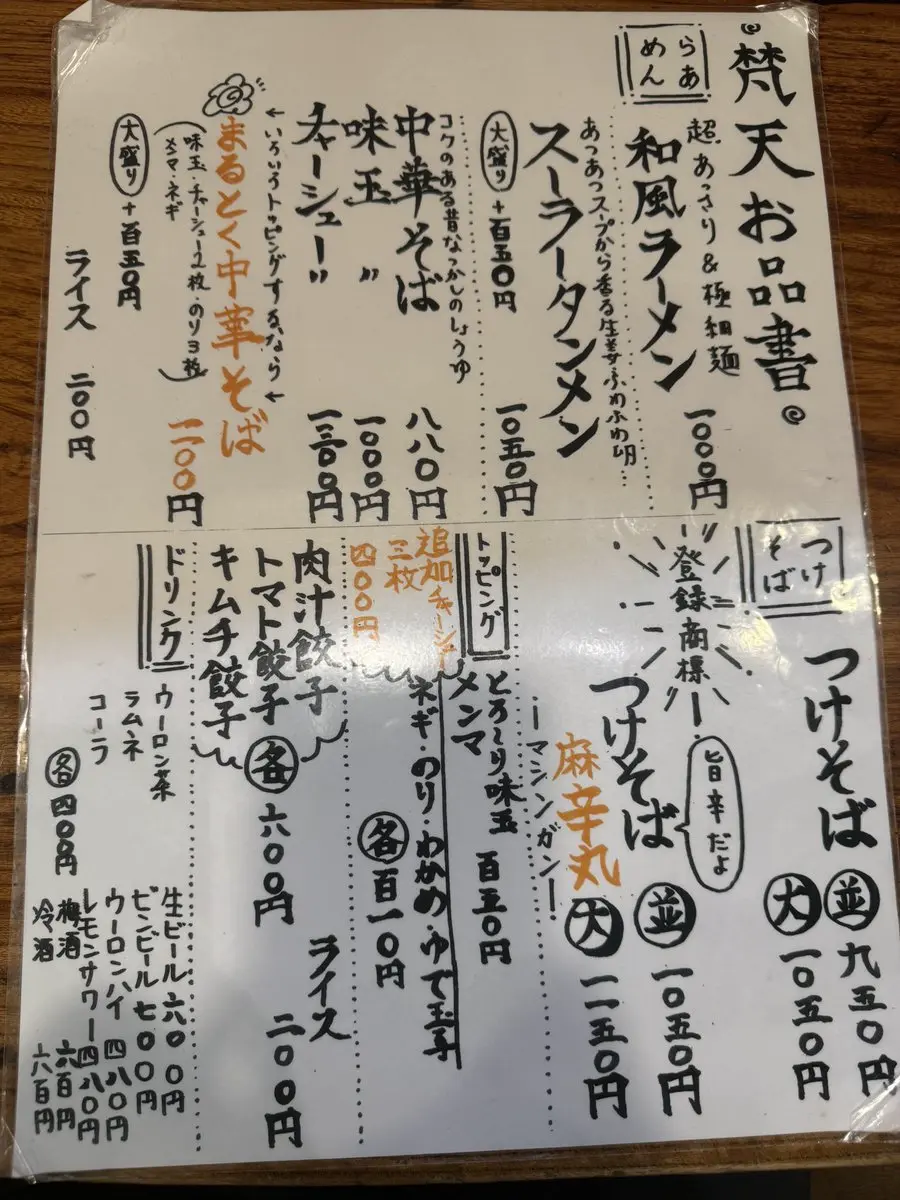 梵天お品書
らあ
めん
超、あっさり&極細麺
和風ラーメン
一〇〇〇円
あつあつスープから香る生姜ふわふわ卵
スーラータンメン
一〇五〇円
大盛り+百五〇円
コクのある昔なつかしのしょうゆ
中華そば
八八〇円
味玉 〃
一〇〇〇円
チャーシュー 〃
一三〇〇円
←いろいろトッピングする、なら←
まるとく中華そば
一二〇〇円
(味玉・チャーシュー2枚・のり3枚
メンマ・ネギ)
大盛り+百五〇円
ライス 二〇〇円
つけ
そば
つけそば
並 九五〇円
大 一〇五〇円
登録商標
旨辛だよ
つけそば
並 一〇五〇円
麻辛丸
ーマシンガン!ー
大 一一五〇円
トッピング
とろ〜り味玉
メンマ
百五〇円
ネギ・のり・わかめ・ゆで玉子
各百一〇円
追加チャーシュー
三枚
四〇〇円
肉汁餃子
トマト餃子
キムチ餃子
各六〇〇円
ライス 二〇〇円
ドリンク
ウーロン茶
ラムネ
コーラ
各四〇〇円
生ビール 六〇〇円
ビンビール 七〇〇円
ウーロンハイ 四八〇円
レモンサワー 四八〇円
梅酒 六百円
冷酒 六百円